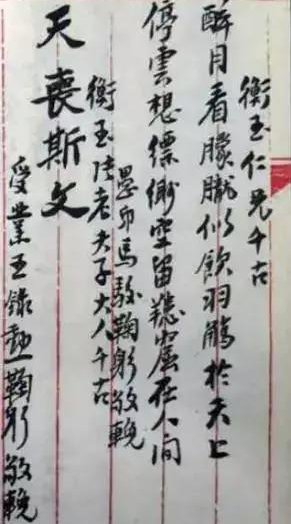 衡玉仁兄千古
醉月看朦朧似飲羽觴於天上
停雲想縹緲空留在人間
愚弟馬駿鞠躬敬輓
衡玉老夫子大人千古
天喪斯文
受業王錄勳鞠躬敬輓